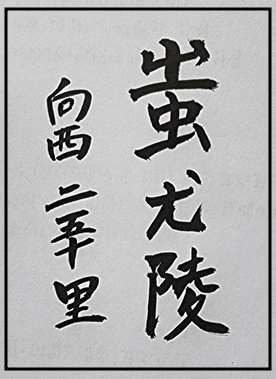 蚩尤陵
向西二華里